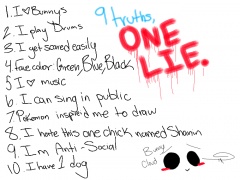 1. I ♡ Bunnys
9 truths,
ONE
LIE.
2. I play Drums
3. I get scared easily
4. Fave color: Green, Blue, Black
5. I ♡ music
6. I can sing in public
7. Pokemon inspired me to draw
8. I hate this one chick named Shanin
9. I'm Anti-Social
10. I have 1 dog
Bunny
Cloud